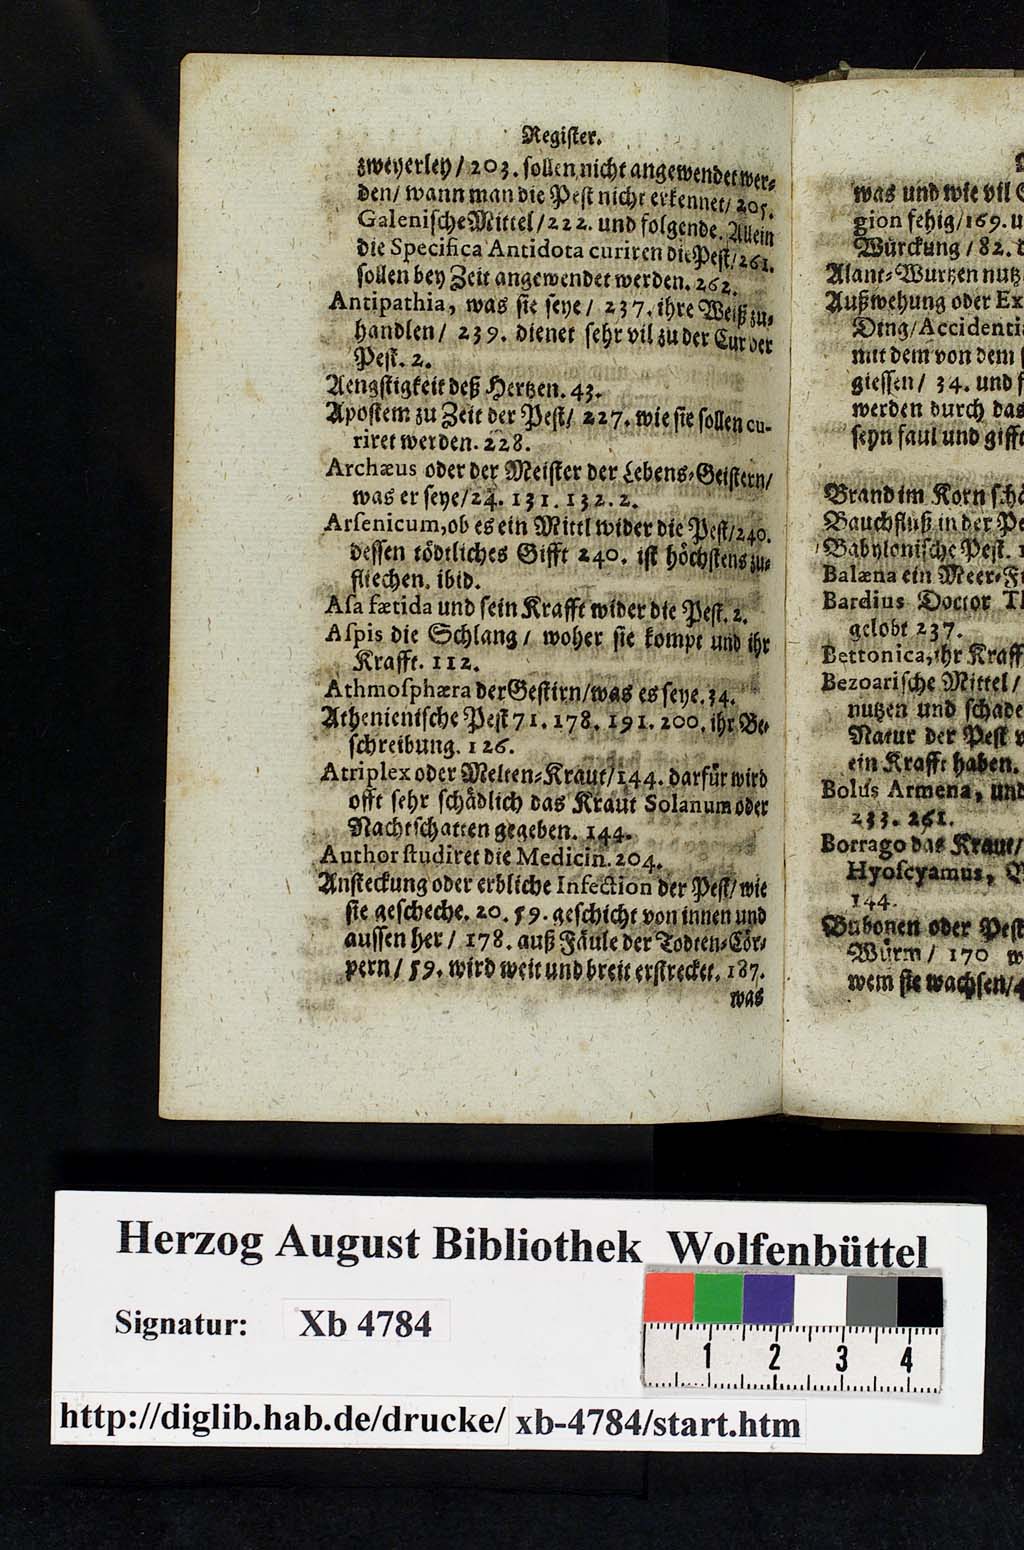 Register.
zweyerley / 203. sollen nicht angewendet wer⸗
den / wann man die Pest nicht erkennet / 205.
Galenische Mittel / 222. und folgende. Allein
die Specifica Antidota curiren die Pest / 261.
sollen bey Zeit angewendet werden. 262.
Antipathia, was sie seye / 237. ihre Weiß zu⸗
handlen / 239. dienet sehr vil zu der Cur der
Pest. 2.
Aengstigkeit deß Hertzen. 43.
Apostem zu Zeit der Pest / 227. wie sie sollen cu-
riret werden. 228.
Archæus oder der Meister der Lebens⸗Geistern /
was er seye / 24. 131. 132. 2.
Arsenicum, ob es ein Mittl wider die Pest / 240.
dessen tödtliches Gifft 240. ist höchstens zu⸗
fliechen. ibid.
Asa fætida und sein Krafft wider die Pest. 2.
Aspis die Schlang / woher sie kompt und ihr
Krafft. 112.
Athmosphæra der Gestirn / was es seye. 34.
Athenienische Pest 71. 178. 191. 200. ihr Be⸗
schreibung. 126.
Atriplex oder Melten⸗Kraut / 144. darfür wird
offt sehr schädlich das Kraut Solanum oder
Nachtschatten gegeben. 144.
Author studiret die Medicin. 204.
Ansteckung oder erbliche Infection der Pest / wie
sie gescheche. 20. 59. geschicht von innen und
aussen her / 178. auß Fäule der Todten⸗Cör⸗
pern / 59. wird weit und breit erstrecket. 187.
was
was und wie vil
gion fehig / 169.
Würckung / 82.
Alant⸗Wurtzen nutz
Außwehung oder Ex
Ding / Accidentia
mit dem von dem
giessen / 34. und
werden durch das
seyn faul und gifft
Brand im Korn schä
Bauchfluß in der Pe
Babylonische Pest.
Balæna ein Meer⸗Fi
Bardius Doctor Th
gelobt 237.
Bettonica, ihr Kraff
Bezoarische Mittel /
nutzen und schade
Natur der Pest
ein Krafft haben.
Bolus Armena, und
233. 261.
Borrago das Kraut /
Hyoscyamus,
144.
Bubonen oder Pest
Würm / 170
wem sie wachsen /
Herzog August Bibliothek Wolfenbüttel
Signatur: Xb 4784
1 2 3 4
http://diglib.hab.de/drucke/ xb-4784/start.htm